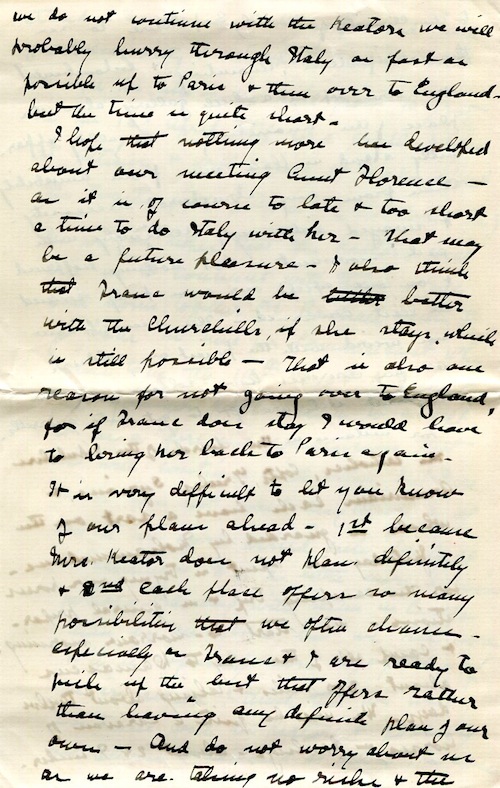 we do not continue with the Keators we will
probably hurry through Italy as fast as
possible up to Paris & then over to England -
but the time is quite short -
I hope that nothing more has developed
about our meeting Aunt Florence -
as it is, of course to late & too short
a time to do Italy with her - that may
be a future pleasure - I also think
that Franc would be better better
with the Churchills, if she stays, which
is still possible - that is also one
reason for not going over to England,
for if Franc does stay I would have
to bring her back to Paris again -
It is very difficult to let you know
of our plans ahead - 1st because
Mrs. Keator does not plan definitely
& 2nd each place offers so many
possibilities that we often change -
especially as Franc & I are ready to
pick up the best that offers rather
than having any definite plan of our
own - And do not worry about us
as we are taking no risks & the